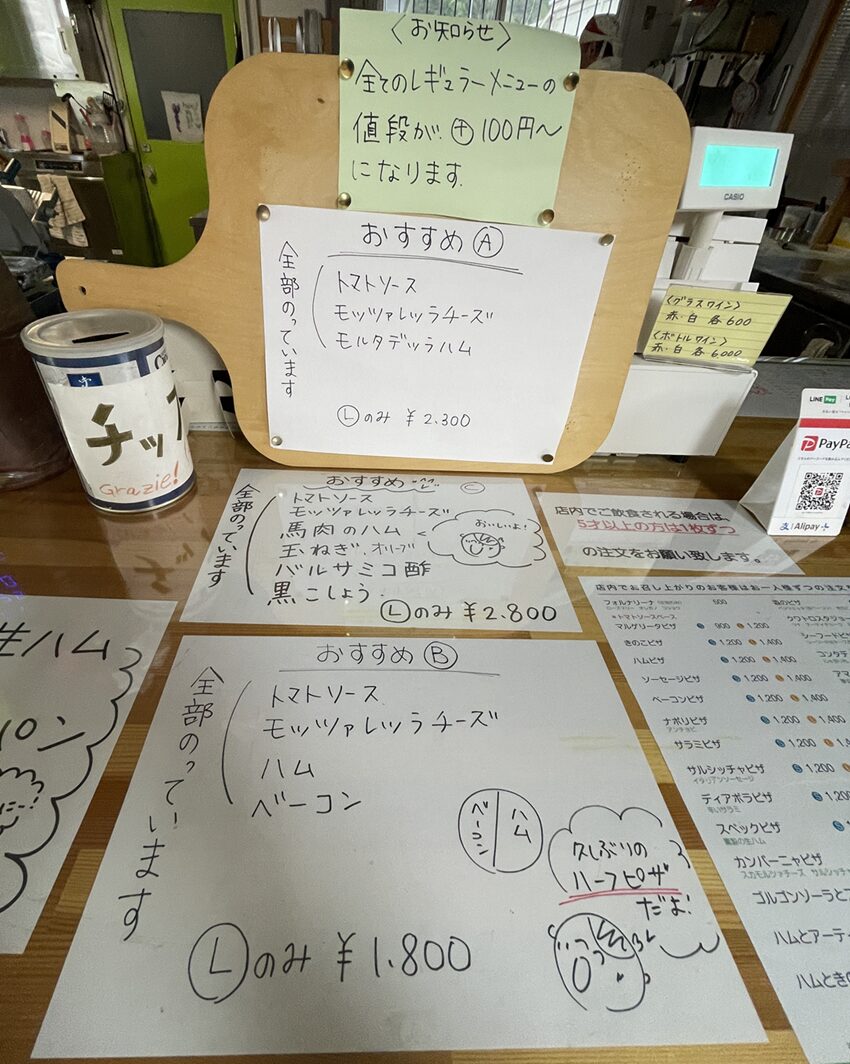 〈お知らせ〉
全てのレギュラーメニューの
値段が㊉100円〜
になります.
おすすめ Ⓐ
全部のっています
トマトソース
モッツァレッラチーズ
モルタデッラハム
Ⓛのみ ¥2.300
CASIO
〈グラスワイン〉
赤・白 各600
〈ボトルワイン〉
赤・白 各6,000
チッ
Grazie!
LINE Pay
PayPa
Alipay+
おすすめ Ⓒ
全部のっています
トマトソース
モッツァレッラチーズ
馬肉のハム
玉ねぎ. オリーブ
バルサミコ酢
黒こしょう.
おいしいよ!
Ⓛのみ ¥2.800
店内でご飲食される場合は、
5才以上の方は1枚ずつ
の注文をお願い致します。
おすすめ Ⓑ
全部のっています
トマトソース
モッツァレッラチーズ
ハム
ベーコン
ベーコン
ハム
久しぶりの
ハーフピザ
だよ!
Ⓛのみ ¥1.800
生ハム
パン
店内でお召し上がりのお客様はお一人様ずつの注文
フォルナリーナ 500
*トマトソースベース
マルゲリータピザ 900 1,200
きのこピザ 1,200 1,400
ハムピザ 1,200 1,400
ソーセージピザ 1,200 1,400
ベーコンピザ 1,200 1,400
ナポリピザ 1,200 1,400
アンチョビ
サラミピザ 1,200 1,4
サルシッチャピザ 1,200 1,4
イタリアンソーセージ
ディアボラピザ 1,200
辛いサラミ
スペックピザ
燻製の生ハム
カンパーニャピザ
スカモルツァチーズ サルシッチャ
ゴルゴンゾーラとブ
ハムとアーティ
ハムときの
クワトロスタジョー
シーフードピ
コンタデ
アマ